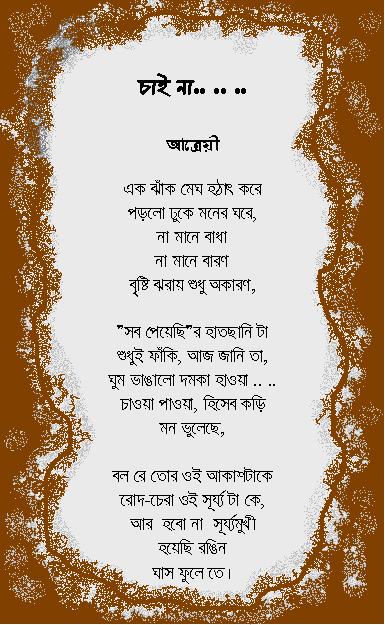 চাই না.. .. ..
আত্রেয়ী
এক ঝাঁক মেঘ হঠাৎ করে
পড়লো ঢুকে মনের ঘরে,
না মানে বাধা
না মানে বারণ
বৃষ্টি ঝরায় শুধু অকারণ,
"সব পেয়েছি"র হাতছানি টা
শুধুই ফাঁকি, আজ জানি তা,
ঘুম ভাঙালো দমকা হাওয়া .. ..
চাওয়া পাওয়া, হিসেব কড়ি
মন ভুলেছে,
বল রে তোর ওই আকাশটাকে
রোদ-চেরা ওই সূর্য্য টা কে,
আর হবো না সূর্য্যমুখী
হয়েছি রঙিন
ঘাস ফুলে তে।